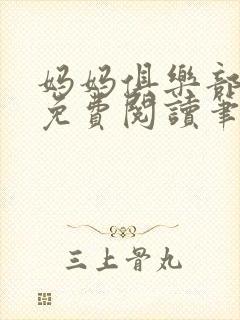 妈妈俱樂部
免費閱讀筆
三上骨丸